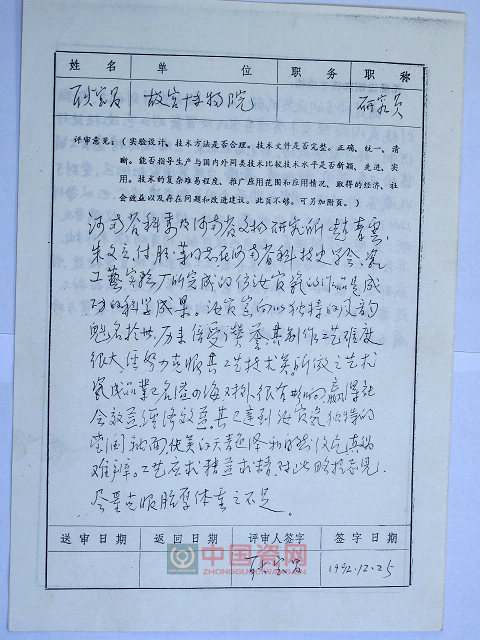 姓名 单位 职务 职称
耿宝昌 故宫博物院 研究员
评审意见：(实验设计、技术方法是否合理。技术文件是否完整、正确、统一、清
晰。能否指导生产与国内外同类技术比较技术水平是否新颖、先进、实
用。技术的复杂难易程度、推广应用范围和应用情况、取得的经济、社
会效益以及存在问题和改进建议。此页不够。可另加附页。)
河南省科委及河南省文物研究所赵青云
朱文立、付胜、等同志在河南省科技史学会瓷
工艺实验厂所完成的仿汝官瓷的作品是成
功的科学成果。汝官窑向以独特的风韵
魁名於世，历来倍受讚誉，其制作工艺难度
很大，经努力克服其工艺技术关，所做之艺术
瓷成品业已名溢四海，对外很有影响，赢得社
会效益经济效益，其已达到汝官瓷独特的
面，优美的天青色泽和自然
难辨。工艺应求精益求精，对此略提意见，
尽量克服胎厚体重之不足。
送审日期 返回日期 评审人签字 签字日期
耿宝昌 1992.12.25
中国瓷网